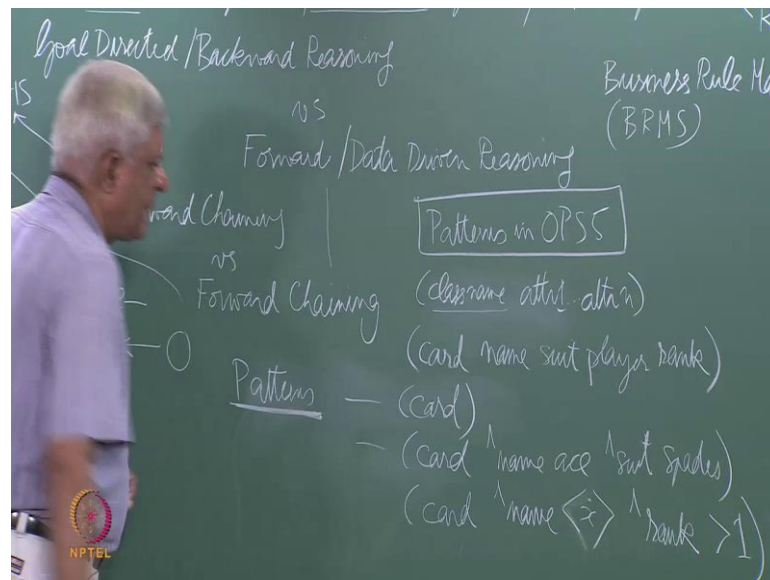 Goal Directed / Backward Reasoning
vs
Forward / Data Driven Reasoning
Business Rule
(BRMS)
Chaining
vs
Forward Chaining
Patterns in OPS5
(classname attr1.. attrn)
(card name suit player rank)
Patterns — (card)
— (card ^name ace ^suit spades)
(card ^name <x> ^rank >1)
NPTEL